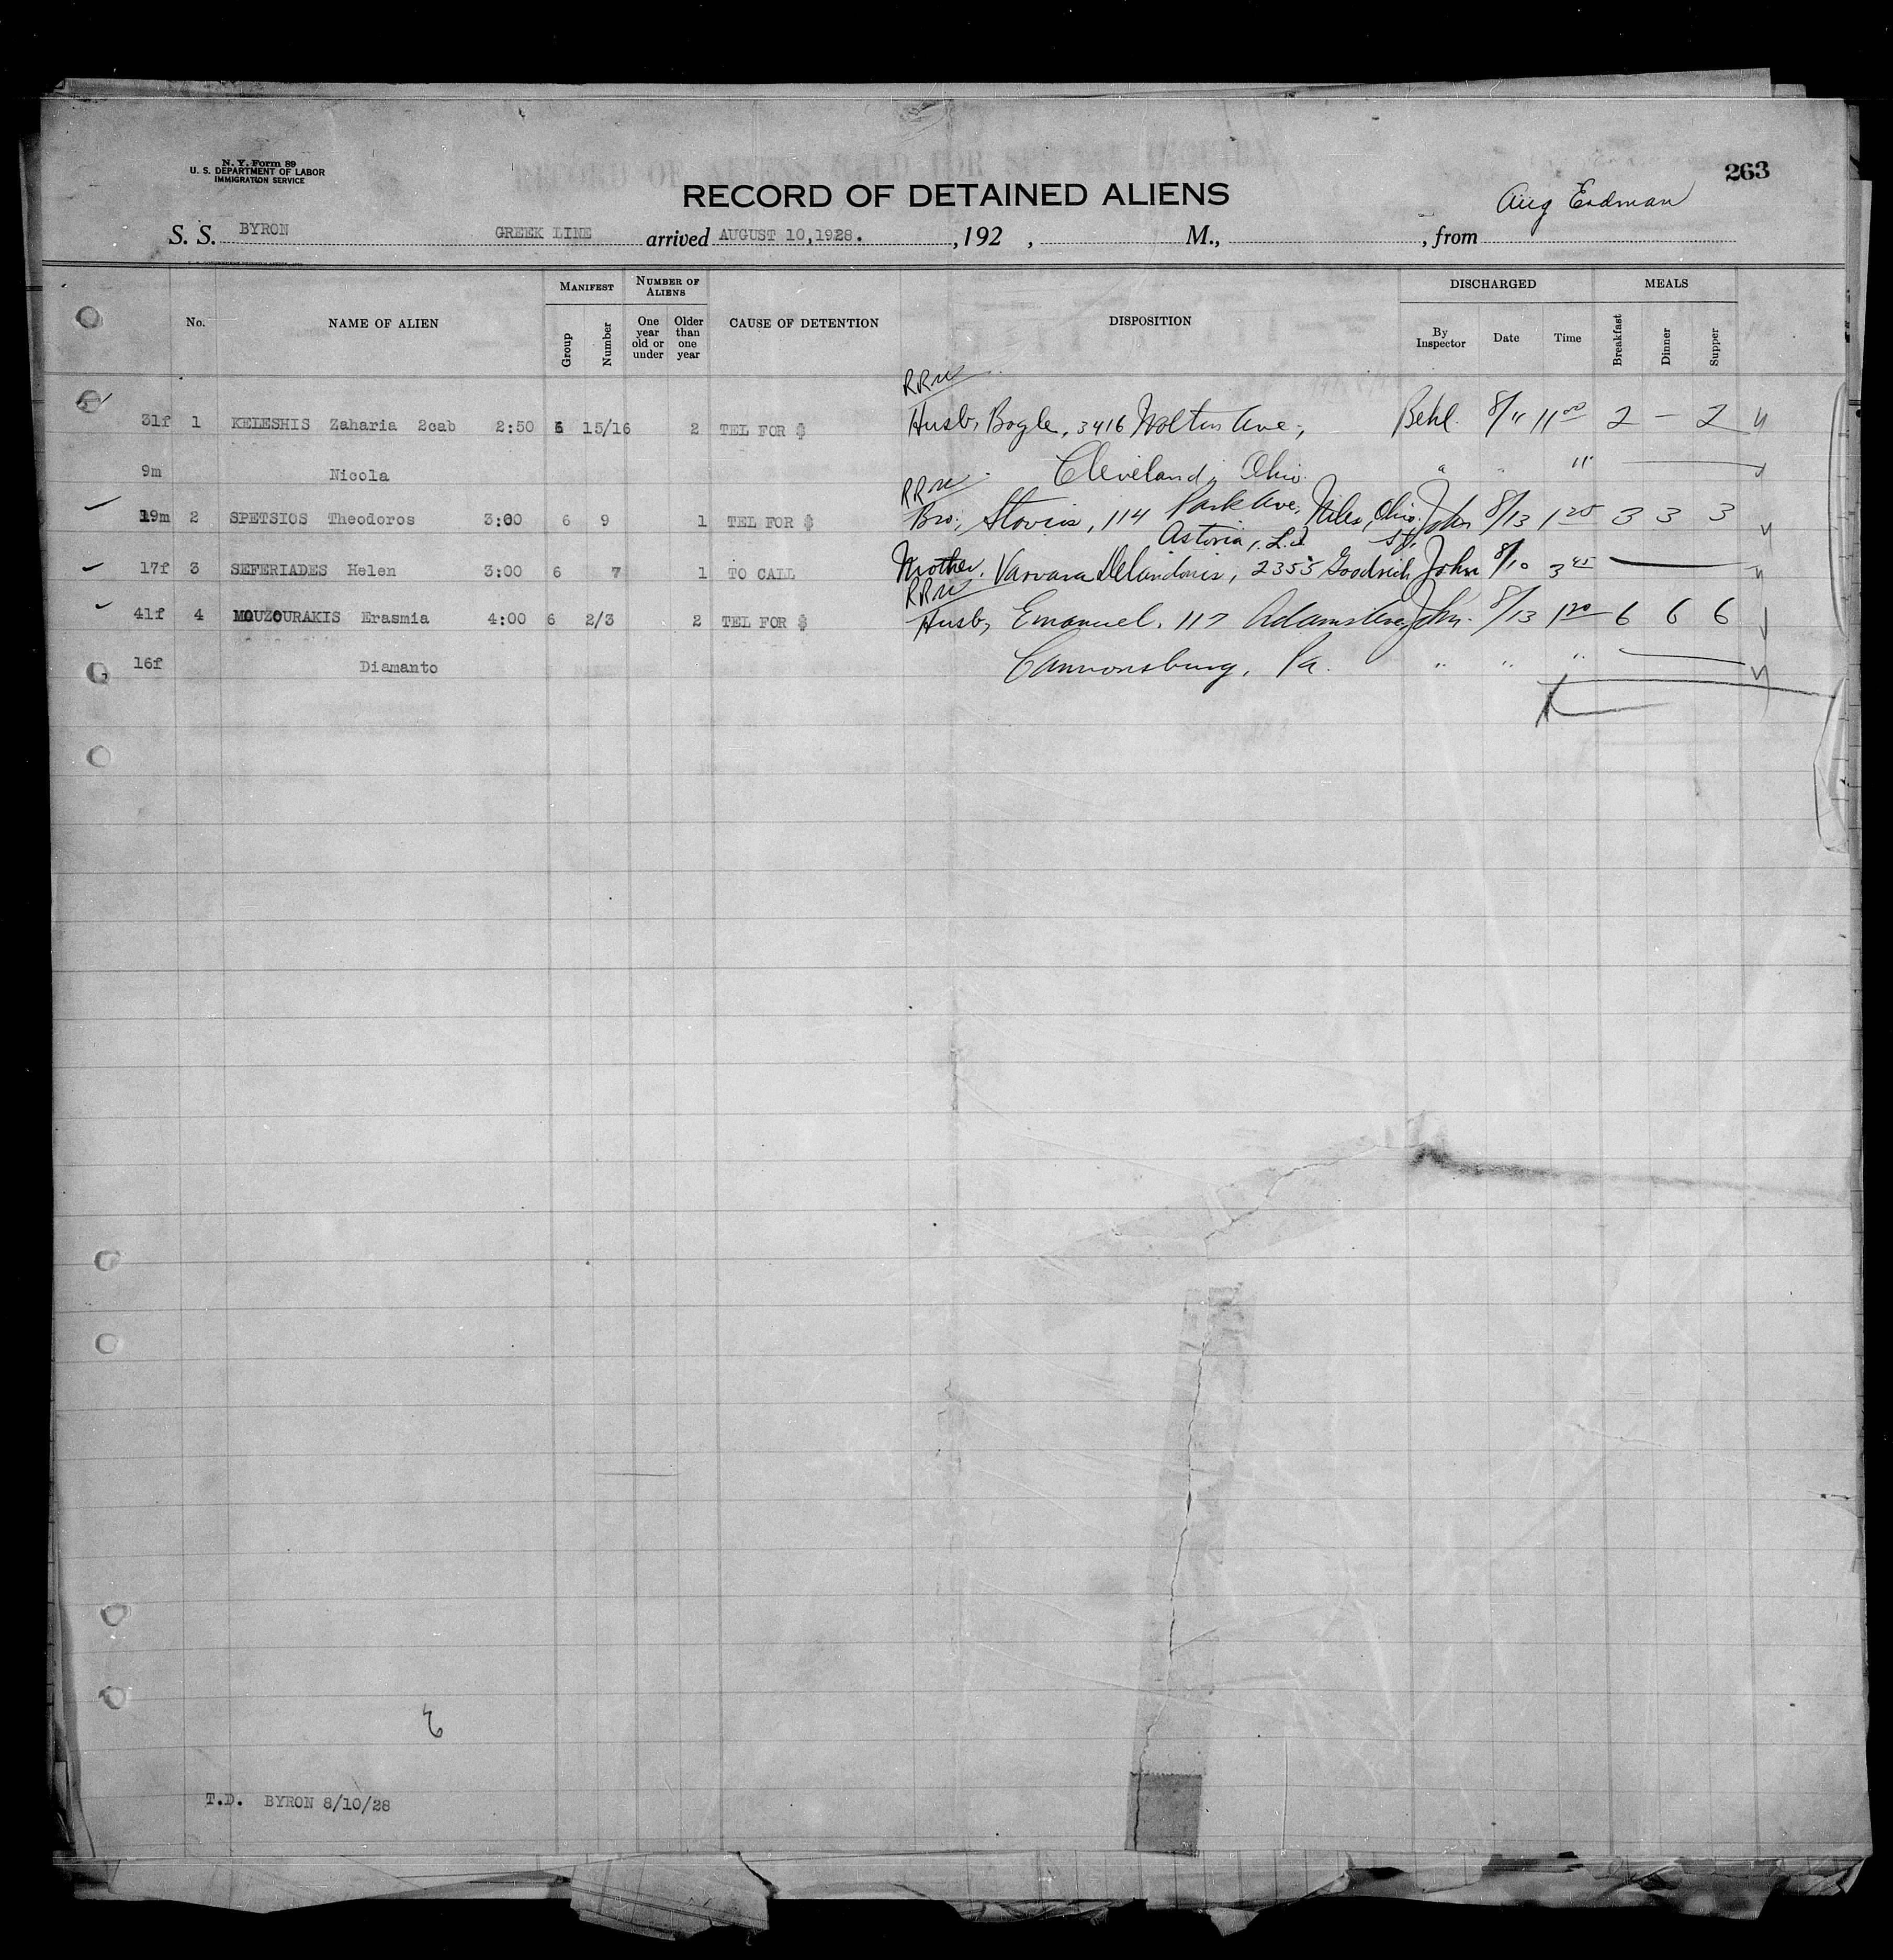 N. Y. Form 89
U. S. DEPARTMENT OF LABOR
IMMIGRATION SERVICE
263
RECORD OF DETAINED ALIENS
Aug Erdman
S. S. BYRON GREEK LINE arrived AUGUST 10,1928. , 192 , M., , from
MANIFEST NUMBER OF ALIENS DISCHARGED MEALS
No. NAME OF ALIEN Group Number One year old or under Older than one year CAUSE OF DETENTION DISPOSITION By Inspector Date Time Breakfast Dinner Supper
RRW
31f 1 KELESHIS Zaharia 2cab 2:50 6 15/16 2 TEL FOR $ Husb, Bogle, 3416 Ave, Behl. 8/11 11 00 2 — 2
9m Nicola Cleveland, Ohio. " " "
RRW
19m 2 SPETSIOS Theodoros 3:00 6 9 1 TEL FOR $ Bro, 114 Park Ave, Niles, Ohio. John 8/13 1 20 3 3 3
Astoria, L.I. St,
17f 3 SEFERIADES Helen 3:00 6 7 1 TO CALL Mother, Varvara 2355 Goodrich John 8/10 3 45
RRW
41f 4 MOUZOURAKIS Erasmia 4:00 6 2/3 2 TEL FOR $ Husb, Emanuel, 117 Adams Ave, John. 8/13 1 20 6 6 6
16f Diamanto Cannonsburg, Pa. " " "
T.D. BYRON 8/10/28